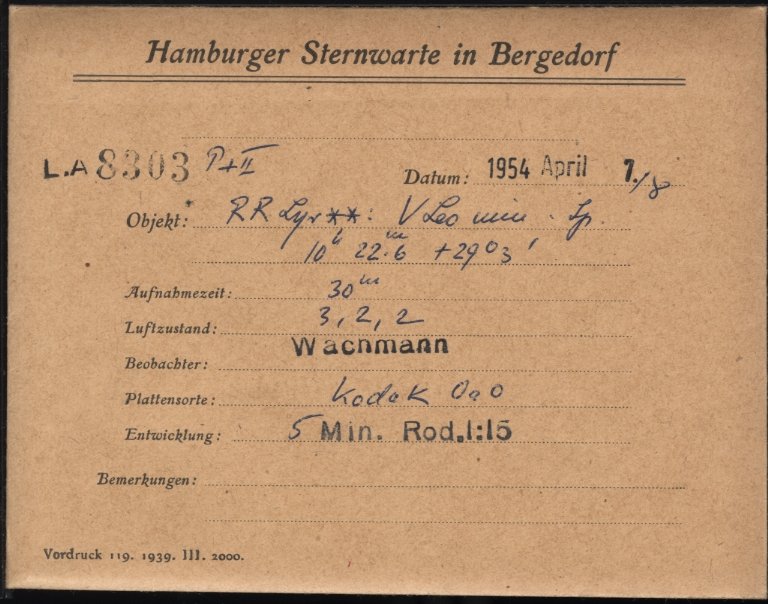 Hamburger Sternwarte in Bergedorf
L.A 8303 P+II Datum: 1954 April 7./8
Objekt: RR Lyr **: V Leo min. Sp.
10h 22m.6 +29°3'
Aufnahmezeit: 30m
Luftzustand: 3, 2, 2
Beobachter: Wachmann
Plattensorte: Kodak OaO
Entwicklung: 5 Min. Rod.1:15
Bemerkungen:
Vordruck 119. 1939. III. 2000.